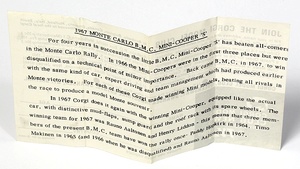 1967 MONTE CARLO B.M.C. MINI-COOPER 'S'
For four years in succession the B.M.C. Mini-Cooper 'S' has beaten all-comers
in the Monte Carlo Rally. In 1966 the Mini-Coopers were in the first three places but were
disqualified on a technical point of minor importance. Back came B.M.C. in 1967, to win
with the same kind of car, expert driving and team management which had produced earlier
Monte victories. For each of these Corgi made winning Mini models, beating all rivals in
the race to produce a model
In 1967 Corgi does it again with the winning Mini-Cooper, equipped like the actual
car, with distinctive mud-flaps, sump guard and the roof rack with its spare wheels. The
winning team for 1967 was Rauno Aaltonen and Henry Liddon - this means that three mem-
bers of the present B.M.C. team have won the rally once: Paddy Hopkirk in 1964, Timo
Makinen in 1965 (and 1966 when he was disqualified) and Rauno Aaltonen in 1967.